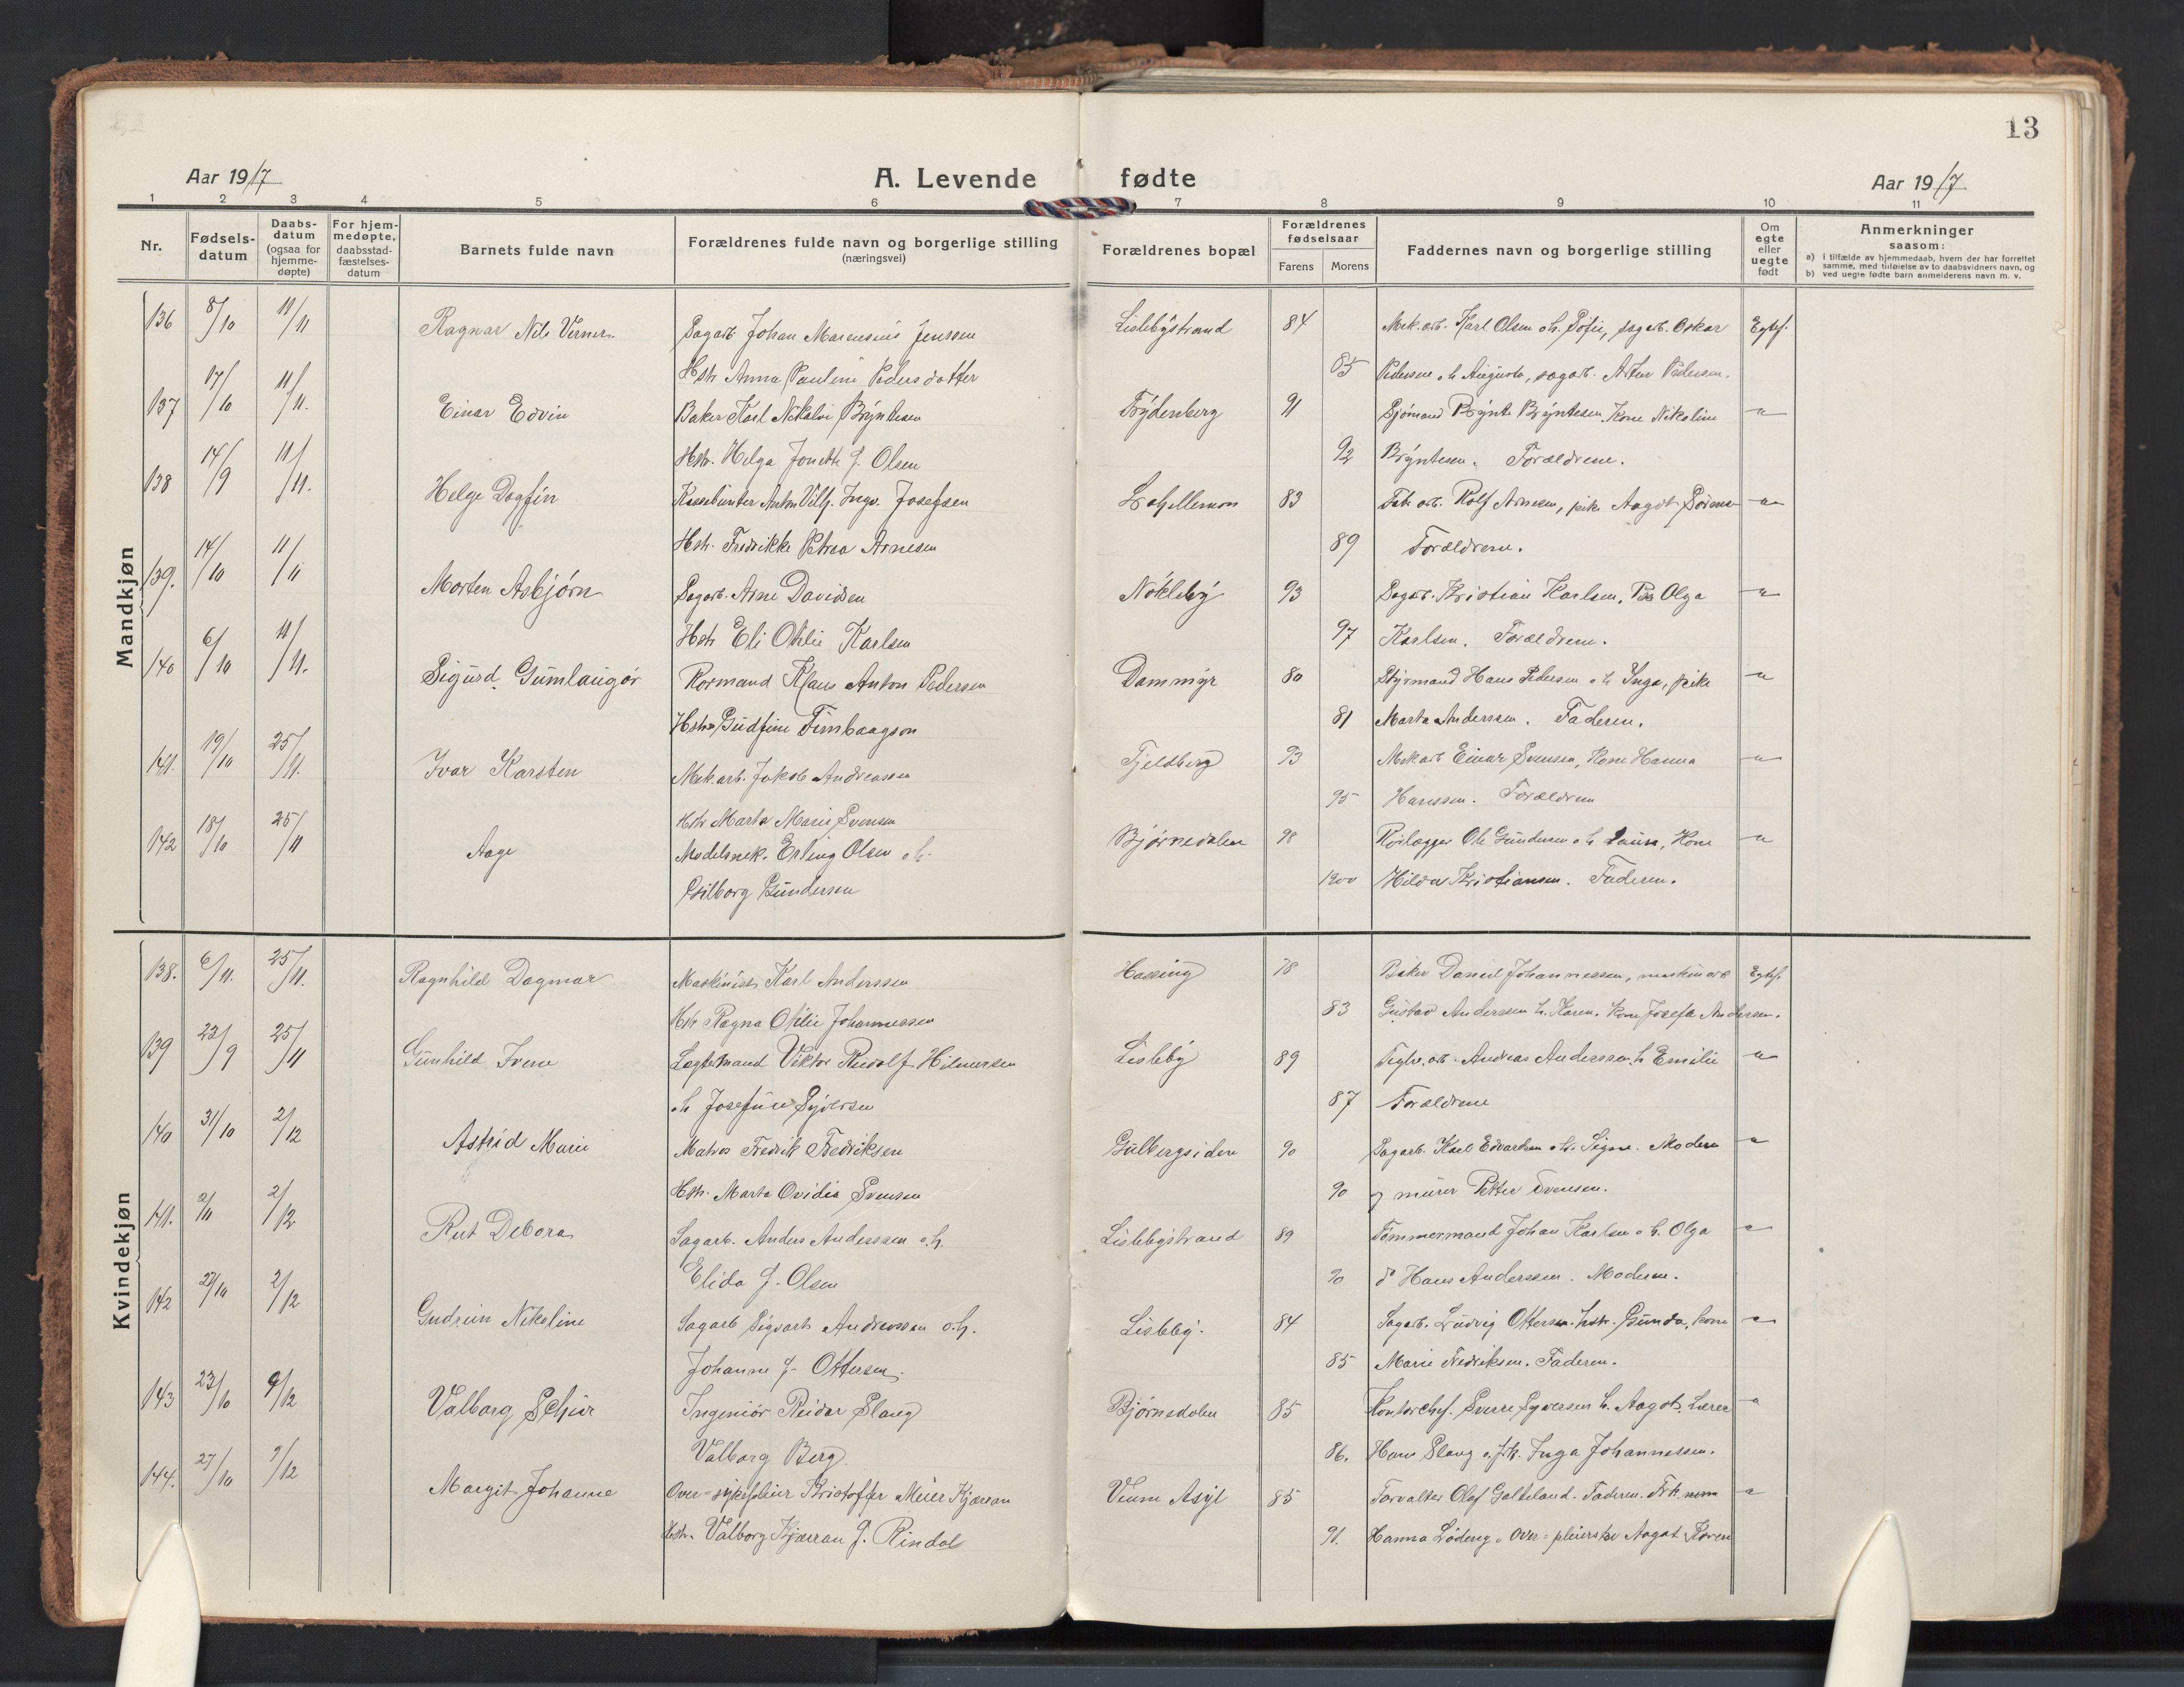 13
Aar 1917
A. Levende fødte
Aar 1917
1 2 3 4 5 6 7 8 9 10 11
Nr.
Fødsels-
datum
Daabs-
datum
(ogsaa for
hjemme-
døpte)
For hjem-
medøpte,
daabsstad-
fæstelses-
datum
Barnets fulde navn
Forældrenes fulde navn og borgerlige stilling
(næringsvei)
Forældrenes bopæl
Forældrenes
fødselsaar
Farens Morens
Faddernes navn og borgerlige stilling
Om
egte
eller
uegte
født
Anmerkninger
saasom:
a) i tilfælde av hjemmedaab, hvem der har forrettet
samme, med tilføielse av to daabsvidners navn, og
b) ved uegte fødte barn anmelderens navn m. v.
Mandkjøn
136 8/10 11/11 Ragnar Nils Verner Sagarb Johan Marensius Jenssen Lislebystrand 84 Mek. arb. Karl Olsen o h. Sofie, sagarb. Oskar Egtef.
Hstr Anna Pauline Pedersdatter 85 Pedersen o h Augusta, sagarb. Artur Pedersen.
137 17/10 11/11. Einar Edvin Baker Karl Nikolai Bryntesen Frydenberg 91 Sjømand Brynte Bryntesen Kone Nikoline -"-
Hstr. Helga Jonette f. Olsen 92 Bryntesen. Forældrene.
138 14/9 11/11. Helge Dagfin Anton Vilh. Ingv. Josefsen 83 Fab. arb. Rolf Arnesen, pike Aagot -"-
Hstr. Fredrikke Petrea Arnesen 89 Forældrene.
139. 14/10 11/11 Morten Asbjørn Sagarb. Arne Davidsen Nökleby 93 Sagarb. Kristian Karlsen, Olga -"-
Hstr Eli Otilie Karlsen 97 Karlsen. Forældrene.
140 6/10 11/11. Sigurd Gumlaugør Rormand Klaus Anton Pedersen Dammyr 80 Styrmand Hans Pedersen o h Inga, pike -"-
Hstr Gudfinn 81 Marta Anderssen. Faderen.
141. 19/10 25/11. Ivar Karsten Mek. arb. Jakob Andreassen Fjeldberg 93 Mek arb Einar Svensen, Kone Hanna -"-
Hstr Marta Marie Svensen 95 Hanssen. Forældrene
142 18/10 25/11 Aage Modelsnek. Erling Olsen o h. Bjørnedalen 98 Rørlægger Ole Gundersen o h Laura, Kone -"-
Gundersen 1900 Hilda Kristiansen. Faderen.
Kvindekjøn
138. 6/11. 25/11. Ragnhild Dagmar Maskinist Karl Anderssen Hassing 78 Baker Daniel Johannessen, maskinarb Egtef.
Hstr Ragna Otilie Johannessen 83 Gustav Anderssen h. Karen. Kone Josefa Andersen.
139 23/9 25/11 Gunhild Irene Viktor Rudolf Hilmersen Lisleby 89 Teglv. arb. Andreas Anderssen h Emilie -"-
o h Josefine Syversen 87 Forældrene
140 31/10 2/12 Astrid Marie Matros Fredrik Fredriksen Gulbergsiden 90 Sagarb. Karl Edvardsen o h. Signe. Modern -"-
Hstr. Marta Ovidia Svensen 90 og murer Petter Svensen.
141. 2/11 2/12 Rut Debora Sagarb. Anders Anderssen o.h. Lislebystrand 89 Tømmermand Johan Karlsen o h. Olga -"-
Elida f. Olsen 90 do Hans Anderssen. Moderen.
142 27/10 2/12 Gudrun Nikoline Sagarb Sigvart Andreassen o.h. Lisleby. 84 Sagarb. Ludvig Ottersen. hstr. Gunda, kone -"-
Johanne f. Ottersen. 85 Marie Fredriksen. Faderen.
143 23/10 9/12 Valborg Schur Ingeniør Reidar Slang Bjørnedalen 85 Kontorchef. Sverre Syversen h. Aagot. Lærer -"-
Valborg Berg. 86. Hans Slang o. frk. Inga Johannessen.
144. 27/10 9/12 Margit Johanne Over-sykepleier Kristoffer Meier Kjærran Veum Asyl 85 Forvalter Olaf Galteland. Faderen. Frk -"-
Hstr. Valborg Kjærran f. Rindal 91. Hanna o Over-pleierske Aagot